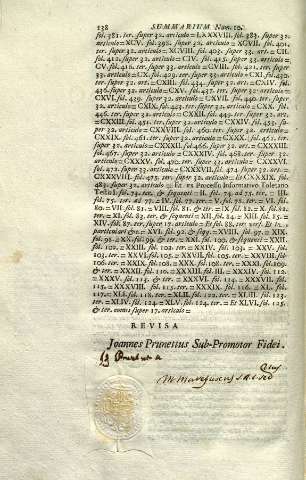 138 SUMMARIUM Num. 10.
fol. 381. ter. super 32. articulo = LXXXVIII. fol. 383. super 32.
articulo = XCV. fol. 392. super 32. articulo = XCVIII. fol. 401.
ter. super 32. articulo = XCVIII. fol. 403. super 33. art. = CII.
fol. 412. super 32. articulo = CIV. fol. 415. super 33. articulo =
CV. fol. 416. ter. super 33. articulo = CVIII. fol. 421. ter. super
33. articulo = CX. fol. 429. ter. super 33. articulo = CXI. fol. 430.
ter. super 32. art. = CXIII. fol. 434. super 32. art. = CXIV. fol.
436. super 32. articulo = CXV. fol. 437. ter. super 32. articulo =
CXVI. fol. 439. super 32. articulo = CXVII. fol. 440. ter.
super 32. articulo = CXIX. fol. 443. ter. super 32. articulo = CXX. fol.
446. ter. super 32. articulo = CXXII. fol. 449. super 32. art.
= CXXIII. fol. 451. ter. super 32. articulo = CXXIV. fol. 453. su-
per 32. articulo = CXXVIII. fol. 460. ter. super 32. articulo =
CXXIX. fol. 461. ter. super 32. articulo = CXXX. fol. 462. ter.
super 32. articulo = CXXXII. fol. 466. super 32. art. = CXXXIII.
fol. 467. super 32. articulo = CXXXIV. fol. 468. ter. super 33.
articulo = CXXXV. fol. 470. ter. super 32. articulo = CXXXVI.
fol. 472. super 32. articulo = CXXXVII. fol. 473. super 32. art. =
CXXXVIII. fol. 475. ter. super 32. articulo = & CXXXIX. fol.
483. super 32. articulo = Et ex Processu Informativo Toletano
Testis I. fol. 73. ter. & sequent. = II. fol. 74. ad 75. ter. = III.
fol. 75. ter. ad 77. = IV. fol. 77. ter. = V. fol. 79. ter. = VI. fol.
80. = VII. fol. 81. = VIII. fol. 81. & ter. = IX. fol. 82. = X. fol. 82.
ter. = XI. fol. 83. ter. & sequenti = XII. fol. 84. = XIII. fol. 85. =
XIV. fol. 87. ter. super 17. articulo = Et fol. 88. ter. uni. & in
particulari & = XVI. fol. 92. & seqq. = XVIII. fol. 97. = XIX.
fol. 98. = XX. fol. 99. & ter. = XXI. fol. 100. & sequenti = XXII.
fol. 101. = XXIII. fol. 102. ter. = XXIV. fol. 103. = XXV. fol.
103. ter. = XXVI. fol. 105. = XXVII. fol. 106. = XXVIII. fol. 106.
ter. = XXIX. fol. 108. = XXX. fol. 108. ter. = XXXI. fol. 109.
& ter. = XXXII. fol. 110. = XXXIII. fol. 111. = XXXIV. fol. 112.
ter. = XXXV. fol. 113. & ter. = XXXVI. fol. 114. = XXXVII. fol.
115. = XXXVIII. fol. 115. ter. = XXXIX. fol. 116. = XL. fol.
117. = XLI. fol. 118. ter. = XLII. fol. 122. ter. = XLIII. fol. 123.
ter. = XLIV. fol. 124. = XLV. fol. 124. ter. = Et XLVI. fol. 125.
& ter. omnes super 17. articulo =
REVISA
Joannes Prunettus Sub-Promotor Fidei.